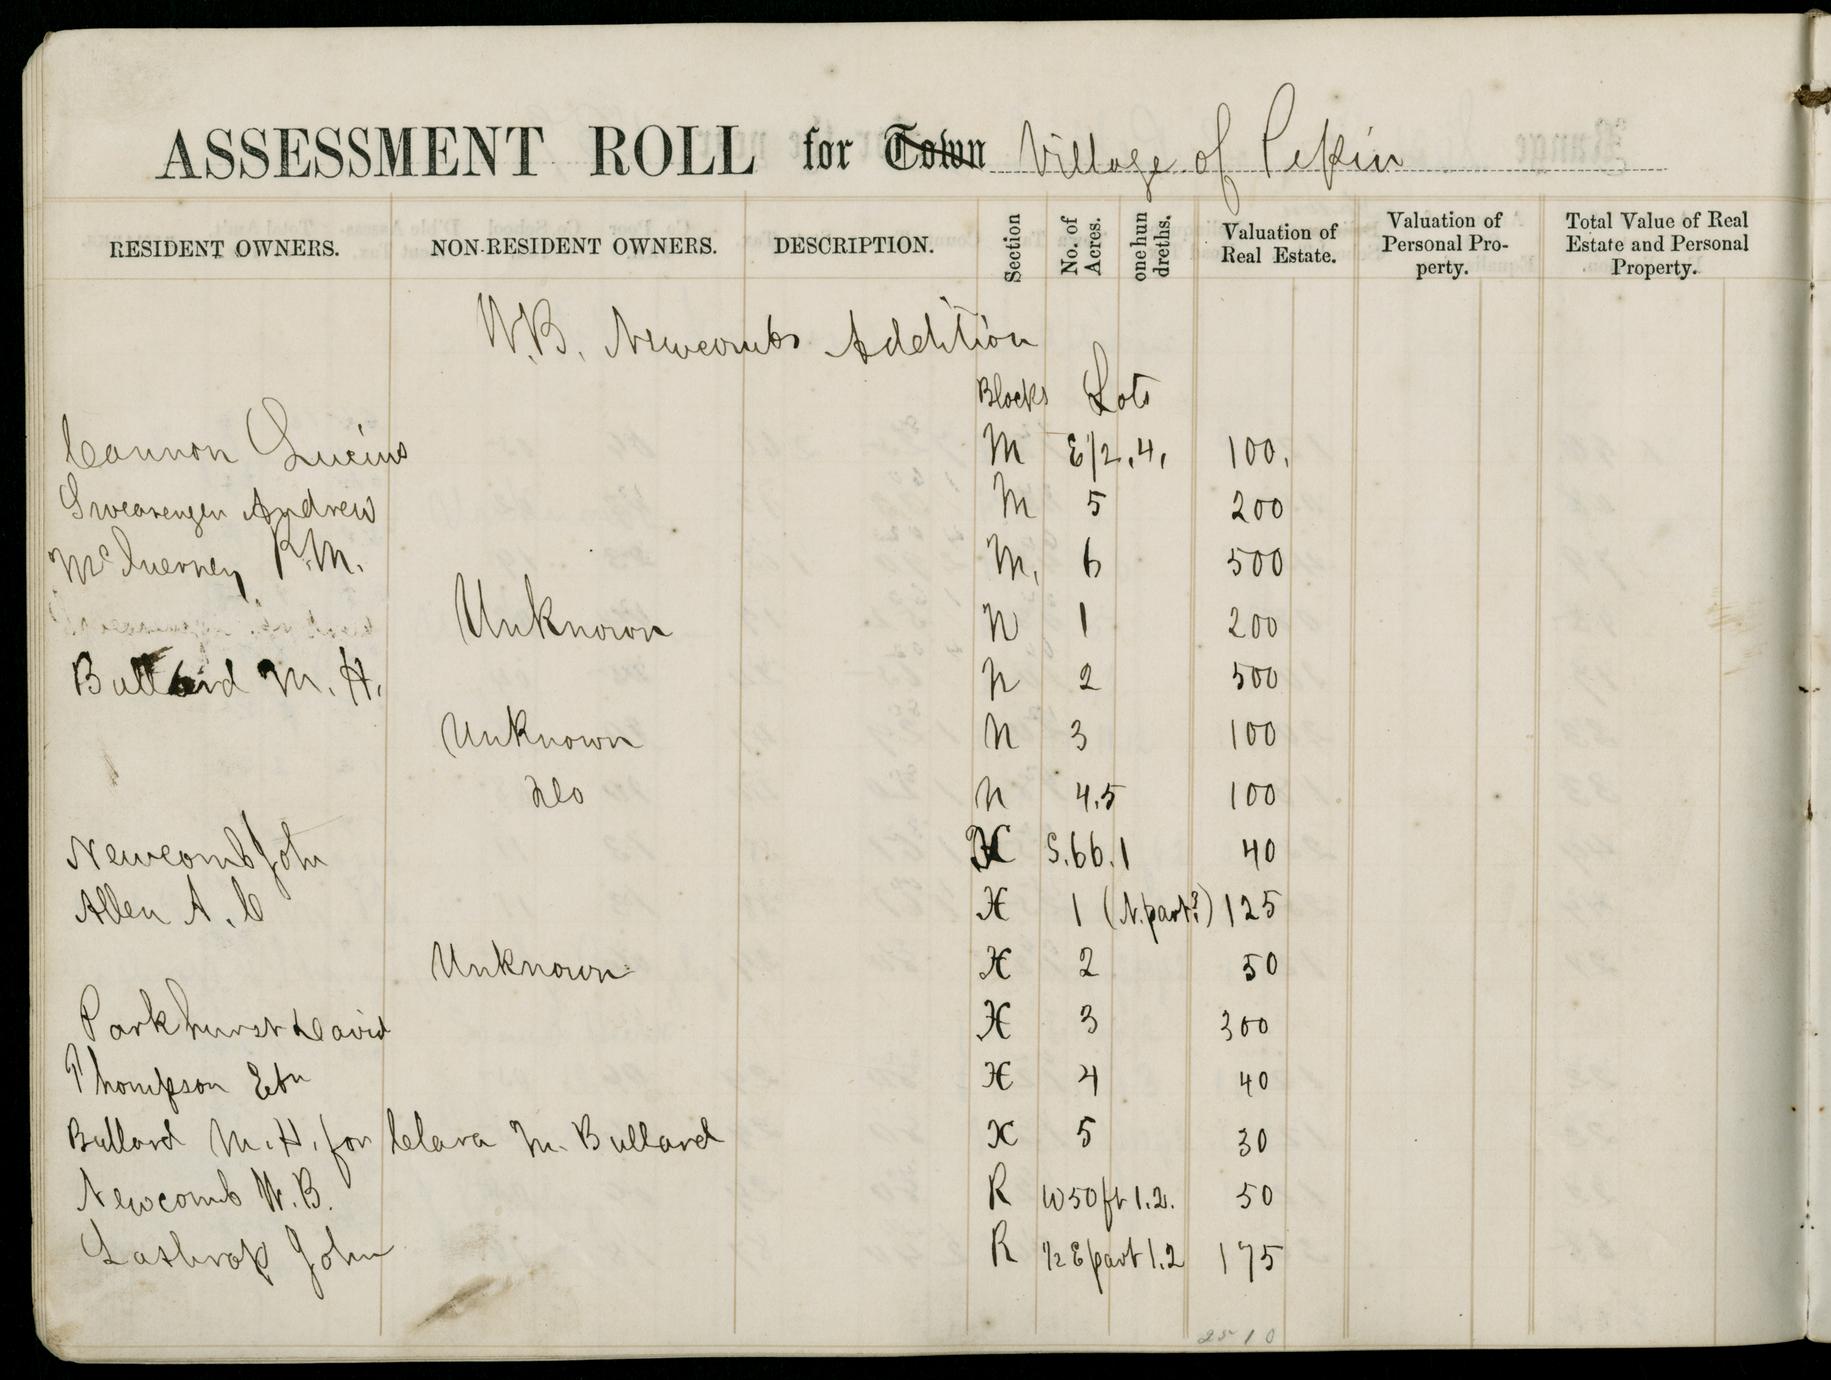 ASSESSMENT ROLL for Town Village of Pepin
RESIDENT OWNERS. NON-RESIDENT OWNERS. DESCRIPTION. Section No. of Acres. one hun dreths. Valuation of Real Estate. Valuation of Personal Pro- perty. Total Value of Real Estate and Personal Property.
W.B. Newcombs Addition
Blocks Lots
Cannon Lucius M E/2.4. 100.
Swearengen Andrew M 5 200
McInerney P.M. M. 6 500
Unknown N 1 200
Bullard M. H. N 2 500
Unknown N 3 100
do N 4.5 100
Newcomb John X S.66.1 40
Allen A. C X 1 (N. part?) 125
Unknown X 2 50
Parkhurst David X 3 300
Thompson Ebn X 4 40
Bullard M. H. for Clara M. Bullard X 5 30
Newcomb W. B. R W 50 ft 1.2. 50
Lathrop John R 1/2 E part 1.2 175
2510